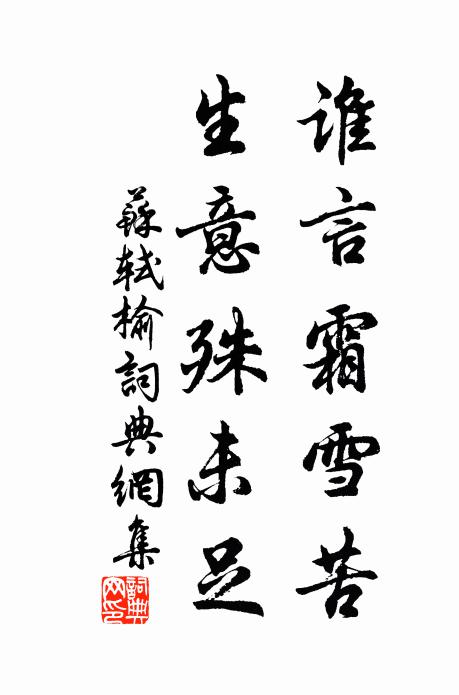 誰言霜雪苦
生意殊未足
蘇軾榆詞典網集
詞典
网印